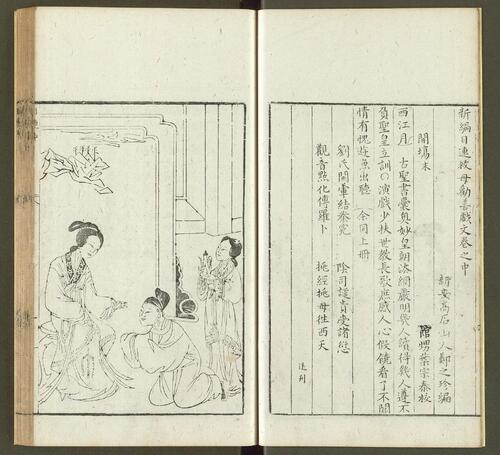 新編目連救母勸善戲文卷之中
新安高石山人鄭之珍編
館甥葉宗泰校
開場末
西江月 古聖書囊奧妙皇朝法網嚴明幾人讀得幾人遵不
負聖皇立訓○演戲少扶世教長歌應感人心假饒看了不關
情有愧遊魚出聽 余同上冊
劉氏開葷結參冤 陰司譴責受諸愆
觀音點化傅羅卜 挑經挑母往西天